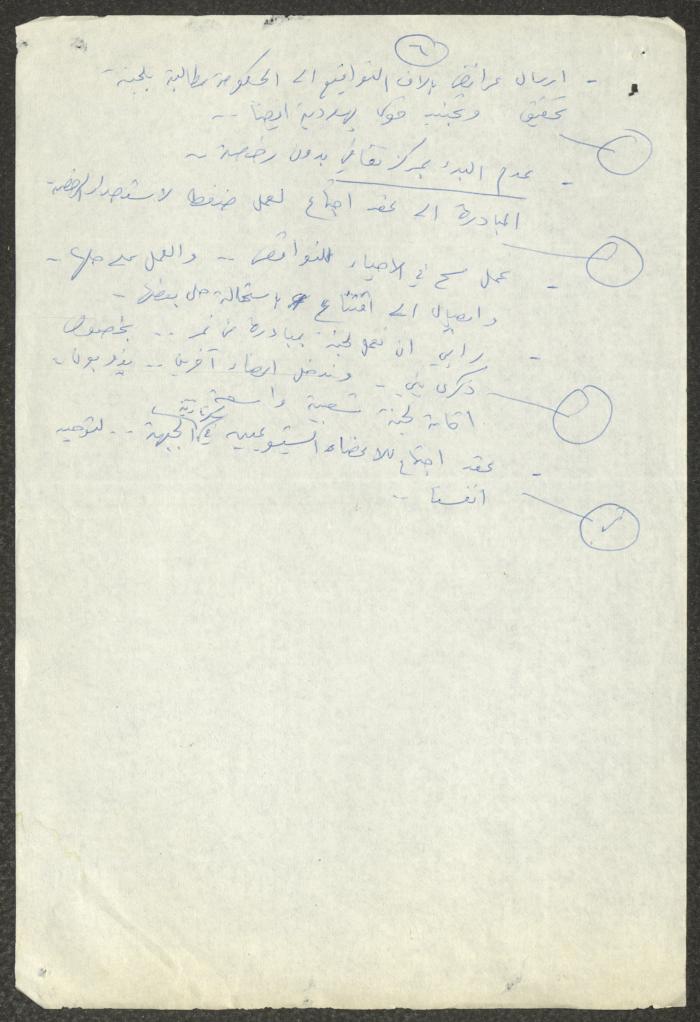 ٦
- ارسال عرائض بالاف التواقيع الى الحكومة مطالبة بلجنة
تحقيق وتجنيد قوى يهودية ايضا --
- عدم البدء بمركز ثقافي بدون رخصة --
المبادرة الى عقد اجتماع لعمل ضغط لاستصدار الرخصة
- عمل مسح في الاحياء للنواقص -- والعمل على حلها --
وايصال الى اقتناع باستحالة حل بعضها --
- رايي ان نعمل لجنة بمبادرة من نمر -- بخصوص
ذكرى -- وندخل اعضاء آخرين --
اقامة لجنة شعبية واسعة
- عقد اجتماع للاعضاء الشيوعيين في الجبهة -- لتوحيد
انفسنا --